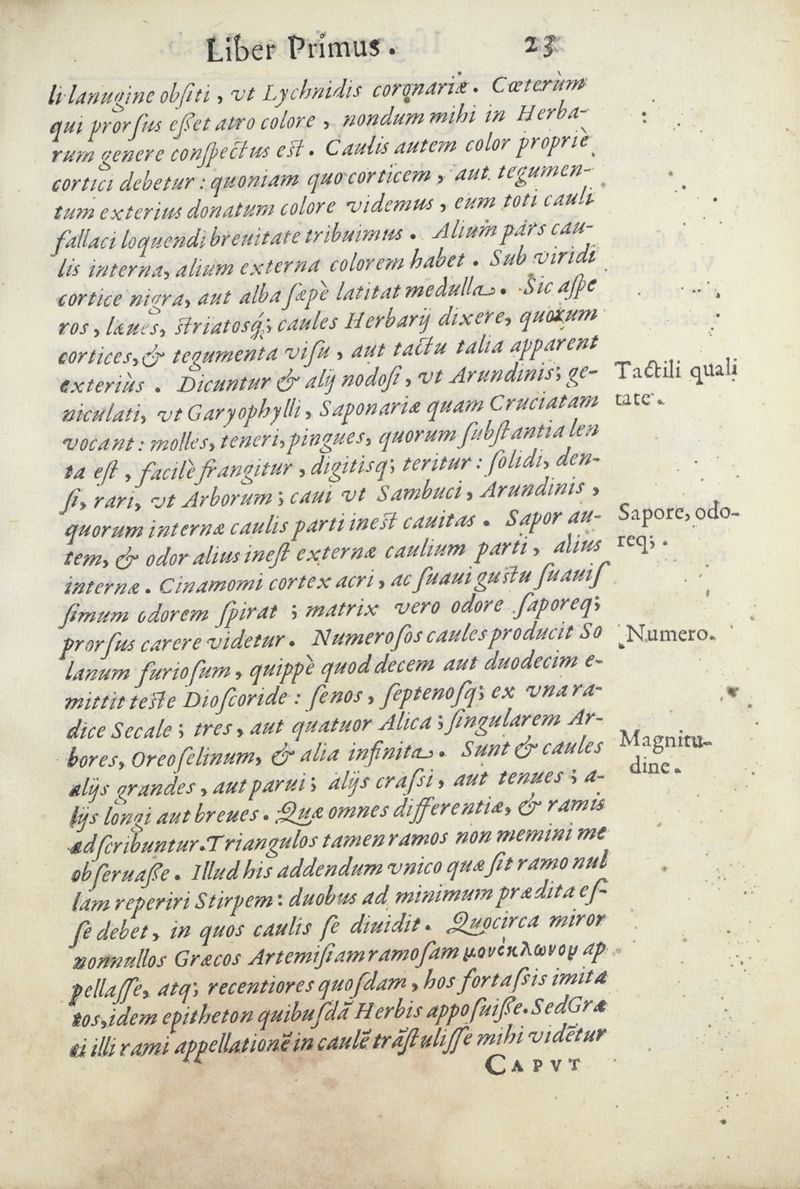 Liber Primus. 23
li lanugine obſiti, vt Lychnidis coronariæ. Cœterùm
qui prorſus eſſet atro colore, nondum mihi in Herba-
rum genere conſpectus est. Caulis autem color propriè
cortici debetur: quoniam quo corticem, aut tegumen-
tum exterius donatum colore videmus, eum toti cauli
fallaci loquendi breuitate tribuimus. Alium pars cau-
lis interna, alium externa colorem habet. Sub viridi
cortice nigra, aut alba ſæpè latitat medulla. Sic aſpe
ros, læues, striatosq; caules Herbarij dixere, quorum
cortices, & tegumenta viſu, aut tactu talia apparent
exteriùs. Dicuntur & alij nodoſi, vt Arundinis; ge-
Tactili quali
niculati, vt Garyophylli, Saponariæ quam Cruciatam
tate.
vocant: molles, teneri, pingues, quorum ſubſtantia len
ta eſt, facilè frangitur, digitisq; teritur: ſolidi, den-
ſi, rari, vt Arborum; caui vt Sambuci, Arundinis,
quorum internæ caulis parti inest cauitas. Sapor au-
Sapore, odo-
tem, & odor alius ineſt externæ caulium parti, alius
req;.
internæ. Cinamomi cortex acri, ac ſuaui gustu ſuauiſ
ſimum odorem ſpirat; matrix vero odore ſaporeq;
prorſus carere videtur. Numeroſos caules producit So
Numero.
lanum furioſum, quippè quod decem aut duodecim e-
mittit teste Dioſcoride: ſenos, ſeptenoſq; ex vna ra-
dice Secale; tres, aut quatuor Alica; ſingularem Ar-
bores, Oreoſelinum, & alia infinita. Sunt & caules
Magnitu-
alijs grandes, aut parui; alijs craſsi, aut tenues; a-
dine.
lijs longi aut breues. Quæ omnes differentiæ, & ramis
adſcribuntur. Triangulos tamen ramos non memini me
obſeruaſſe. Illud his addendum vnico quæ ſit ramo nul
lam reperiri Stirpem: duobus ad minimum prædita eſ-
ſe debet, in quos caulis ſe diuidit. Quocirca miror
nonnullos Græcos Artemiſiam ramoſam μονόκλωνον ap
pellaſſe, atq; recentiores quoſdam, hos fortaſsis imita
tos, idem epitheton quibuſdã Herbis appoſuiſſe. Sed Græ
ci illi rami appellationẽ in caulẽ trãſtuliſſe mihi vidẽtur
CAPVT